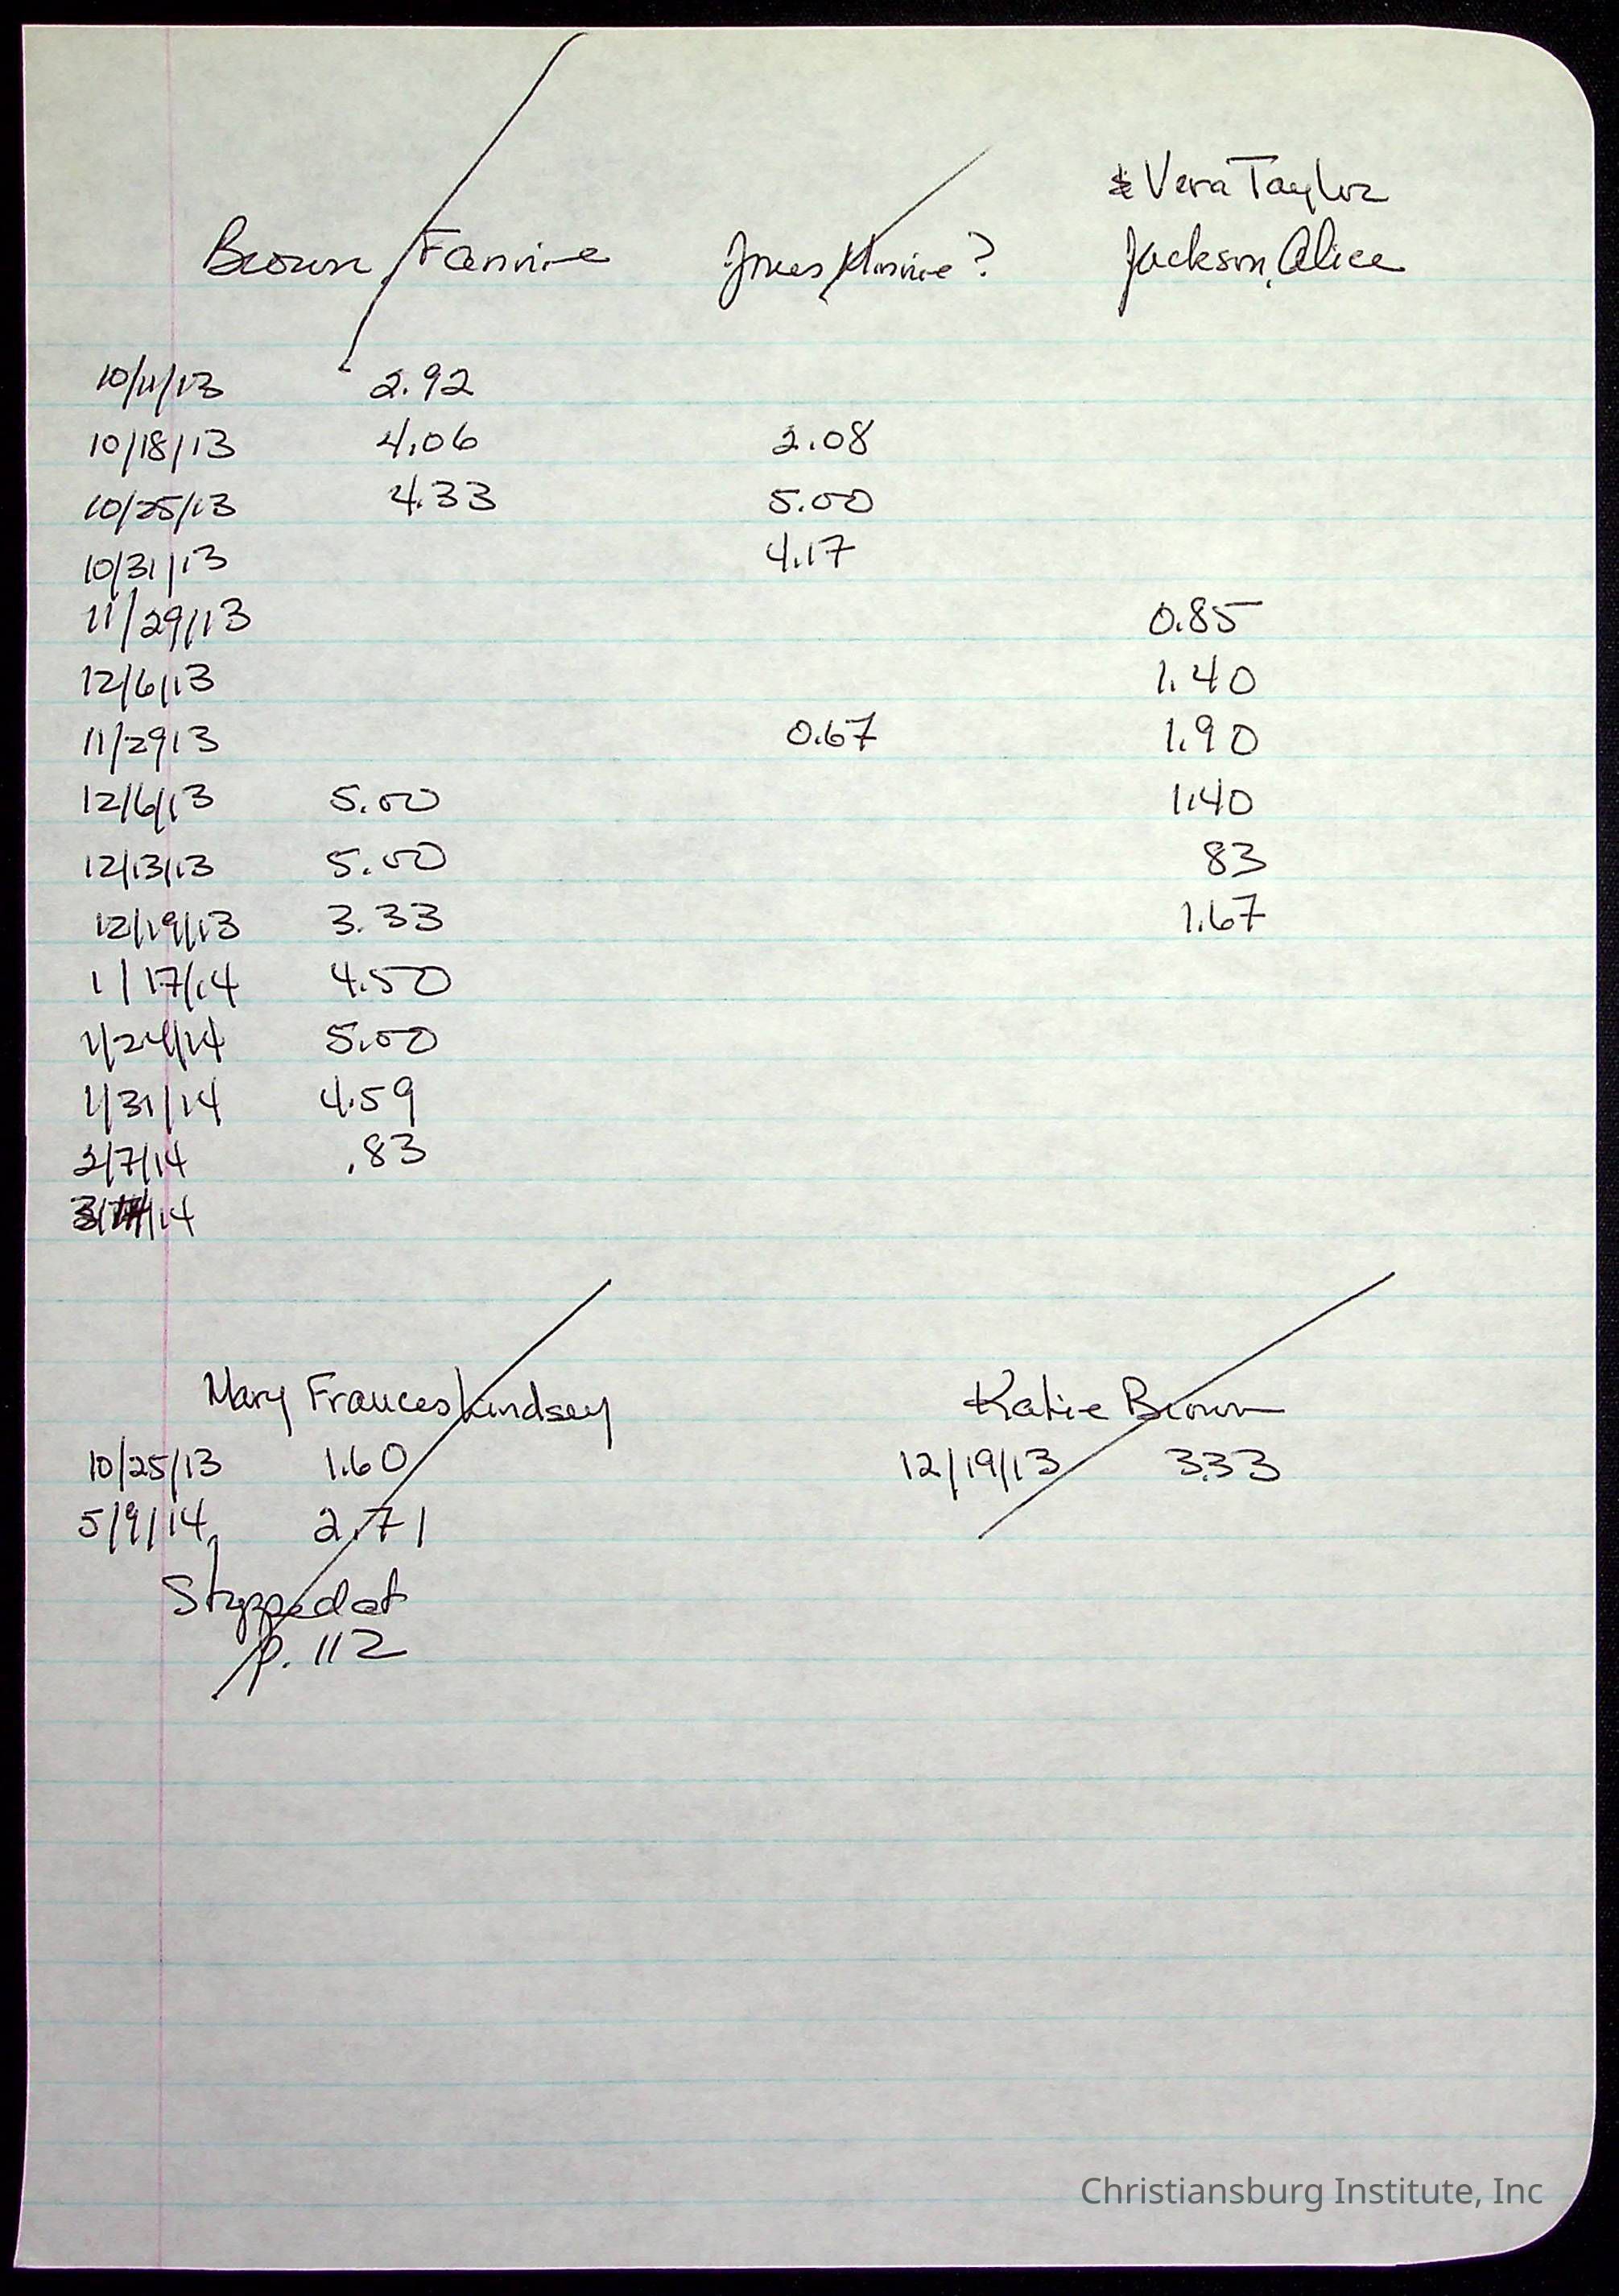 & Vera Taylor
Brown, Fannie Jones, Minnie ? Jackson, Alice
10/11/13 2.92
10/18/13 4.06 2.08
10/25/13 4.33 5.00
10/31/13 4.17
11/29/13 0.85
12/6/13 1.40
11/2913 0.67 1.90
12/6/13 5.00 1.40
12/13/13 5.00 83
12/19/13 3.33 1.67
1/17/14 4.50
1/24/14 5.00
1/31/14 4.59
2/7/14 .83
Mary Frances Lindsey Katie Brown
10/25/13 1.60 12/19/13 3.33
5/9/14 2.71
Stopped at
p. 112
Christiansburg Institute, Inc